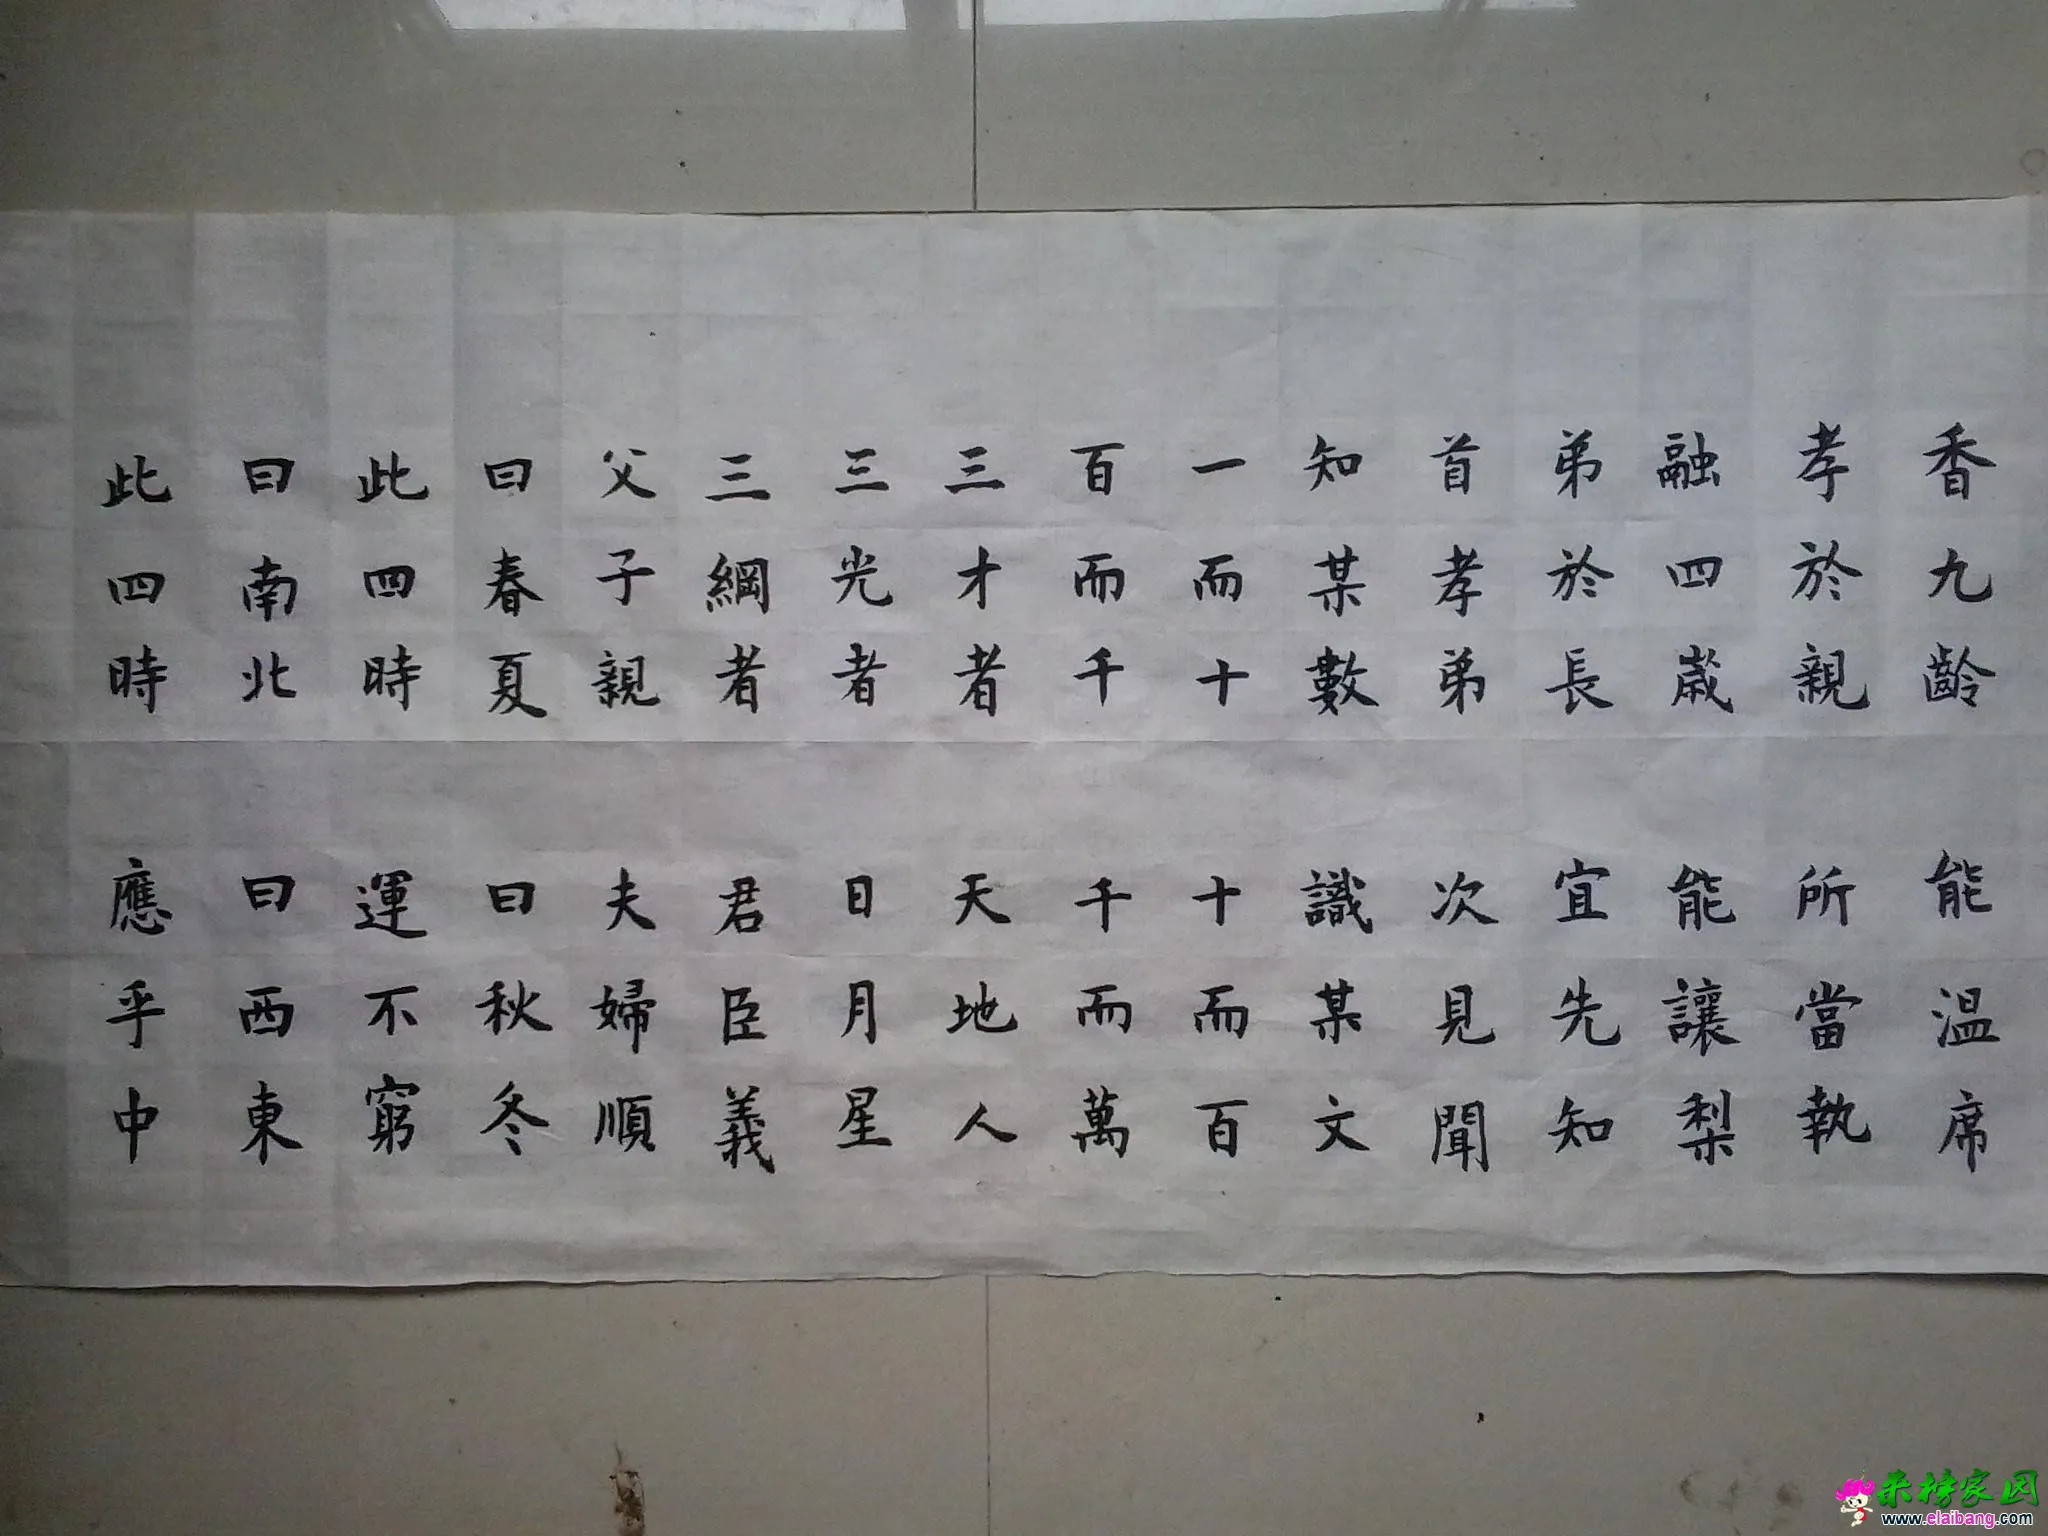 香九齡能温席
孝於親所當執
融四歲能讓梨
弟於長宜先知
首孝弟次見聞
知某數識某文
一而十十而百
百而千千而萬
三才者天地人
三光者日月星
三綱者君臣義
父子親夫婦順
曰春夏曰秋冬
此四時運不窮
曰南北曰西東
此四時應乎中
来榜家园
www.elaibang.com